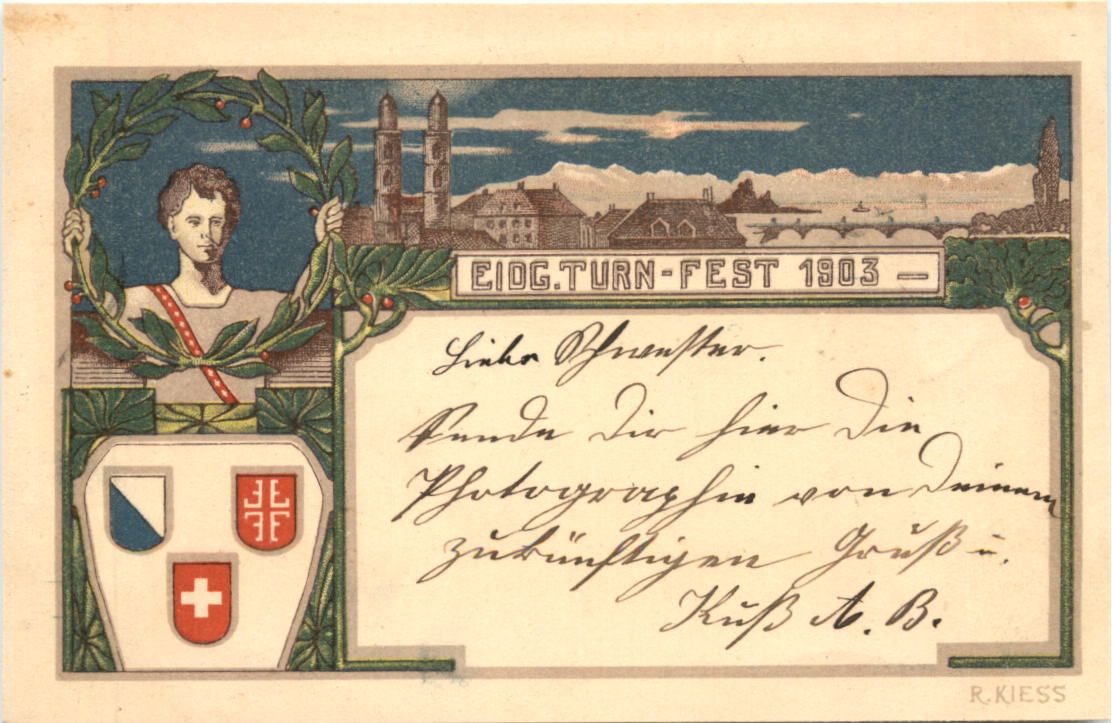 EIDG. TURN-FEST 1903 —
Liebe Schwester.
Sende Dir hier die
Photographie von Deinem
zukünftigen Gruß u.
Kuß A. B.
R. KIESS